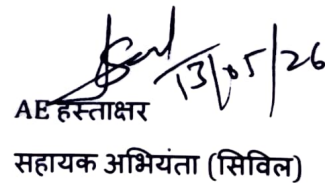 13/05/26
AE हस्ताक्षर
सहायक अभियंता (सिविल)